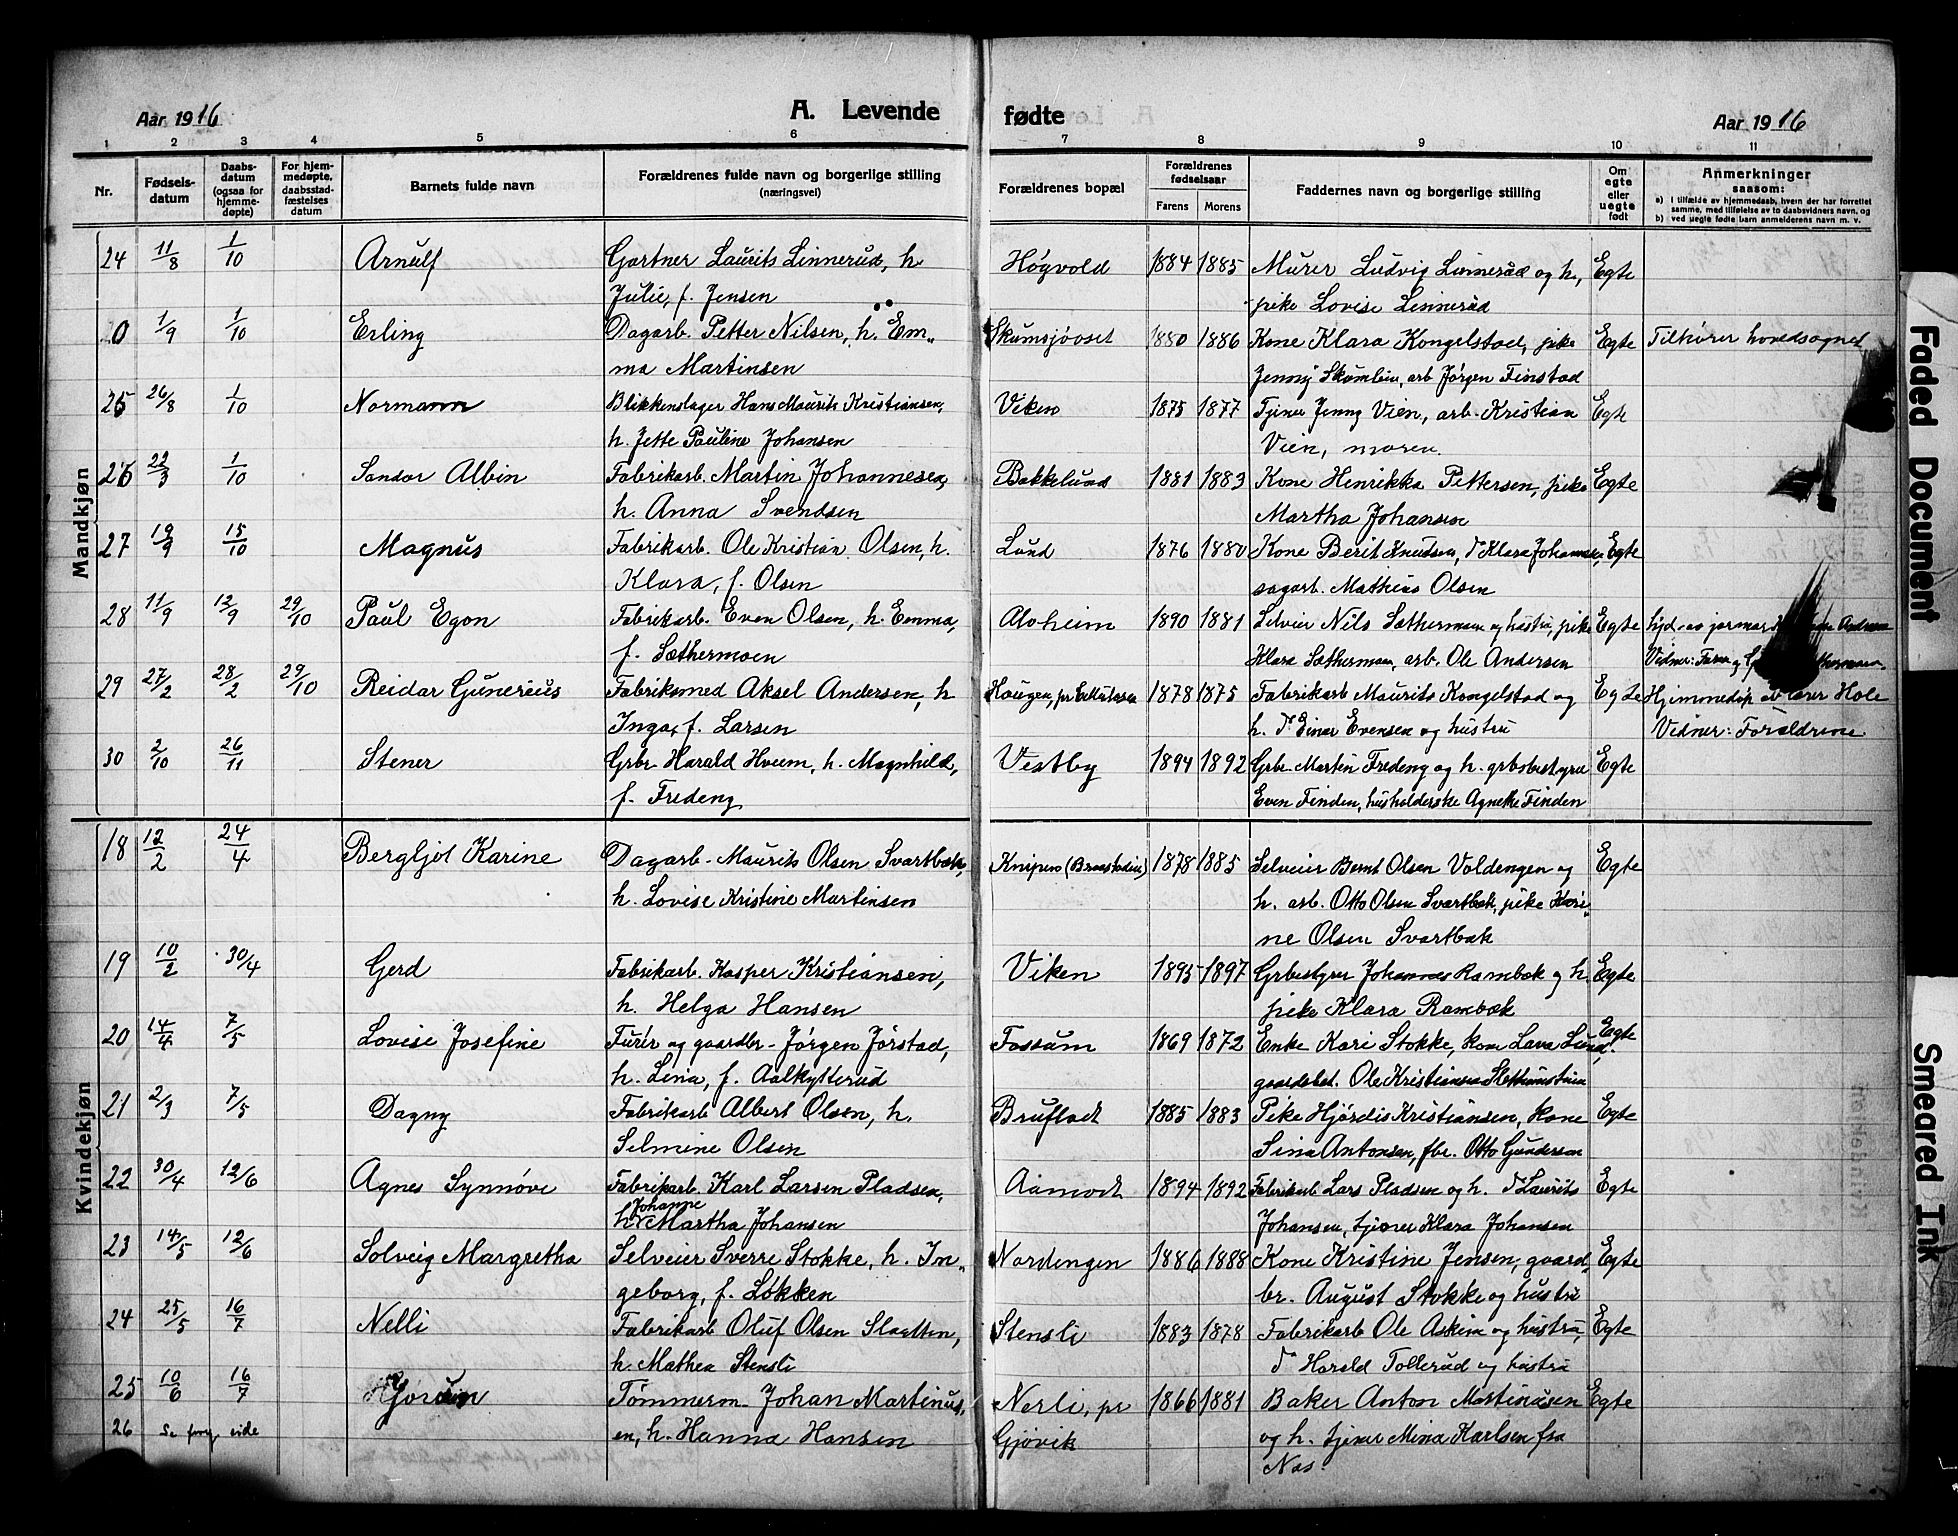 Aar 1916
A. Levende
fødte
Aar 1916
1 2 3 4 5 6 7 8 9 10 11
Nr.
Fødselsdatum
Daabsdatum (ogsaa for hjemmedøpte)
For hjemmedøpte, daabsstadfæstelses datum
Barnets fulde navn
Forældrenes fulde navn og borgerlige stilling
(næringsvei)
Forældrenes bopæl
Forældrenes fødselsaar
Farens Morens
Faddernes navn og borgerlige stilling
Om egte eller uegte født
Anmerkninger
saasom:
a) I tilfælde av hjemmedaab, hvem der har forrettet
samme, med tilføielse av to daabsvidners navn, og
b) ved uegte fødte barn anmelderens navn m. v.
Mandkjøn
24 11/8 1/10 Arnulf Gartner Laurits Linnerud, h. Høgvold 1884 1885 Murer Ludvig Linnerud og h., Egte
Julie, f. Jensen pike Lovise Linnerud
0 1/9 1/10 Erling Dagarb. Petter Nilsen, h. Em„ Skumsjøoset 1880 1886 Kone Klara Kongelstad, pike Egte Tilhører hovedsognet
ma Martinsen Jenny Skumlien, arb Jørgen Finstad
25 26/8 1/10 Normann Blikkenslager Hans Maurits Kristiansen, Viken 1875 1877 Tjener Jenny Vien, arb. Kristian Egte
h. Jette Pauline Johansen Vien, moren.
26 22/3 1/10 Sandor Albin Fabrikarb. Martin Johannesen, Bakkelund 1881 1883 Kone Henrikka Pettersen, pike Egte
h. Anna Svendsen Martha Johansen
27 19/9 15/10 Magnus Fabrikarb. Ole Kristian Olsen, h. Lund 1876 1880 Kone Berit Knudsen, d° Klara Johannesen, Egte
Klara, f. Olsen sagarb. Mathias Olsen
28 11/9 12/9 29/10 Paul Egon Fabrikarb. Even Olsen, h. Emma, Alvheim 1890 1881 Selveier Nils Sæthermoen og hustru, pike Egte hjd. av jormor
f. Sæthermoen Klara Sæthermoen, arb. Ole Andersen Vidner: Faren og
29 27/2 28/2 29/10 Reidar Gunerius Fabriksmed Aksel Andersen, h Haugen, 1878 1875 Fabrikarb Maurits Kongelstad og Egte Hjemmedøp av lærer Hole
Inga, f. Larsen h. d° Einar Evensen og hustru Vidner: Forældrene
30 2/10 26/11 Stener Grbr Harald Hveem, h. Magnhild, Vestby 1894 1892 Grbr. Martin Fredeng og h. grbsbestyrer Egte
f. Fredeng Even Finden, husholderske Agnethe Finden
Kvindekjøn
18 12/2 24/4 Bergljot Karine Dagarb. Maurits Olsen Svartbæk, Knipen (Braastadlien) 1878 1885 Selveier Bernt Olsen Voldengen og Egte
h. Lovise Kristine Martinsen h. arb. Otto Olsen Svartbæk, pike Kari„
ne Olsen Svartbæk
19 10/2 30/4 Gerd Fabrikarb. Kasper Kristiansen, Viken 1895 1897 Grbestyrer Johannes Rambæk og h. Egte
h. Helga Hansen pike Klara Rambæk
20 14/4 7/5 Lovise Josefine Furér og gaardbr. Jørgen Jørstad, Fossum 1869 1872 Enke Kari Stokke, kone Lava Lund. Egte
h. Lina, f. Aalkytterud gaardsbest. Ole Kristiansen
21 2/3 7/5 Dagny Fabrikarb Albert Olsen, h. Bruflodt 1885 1883 Pike Hjørdis Kristiansen, kone Egte
Selmine Olsen Sina Antonsen, fbr. Otto Gundersen
22 30/4 12/6 Agnes Synnøve Fabrikarb. Karl Larsen Pladsen, Aamodt 1894 1892 Fabrikarb Lars Pladsen og h. d° Laurits Egte
Johanne
h. Martha Johansen Johansen, tjener Klara Johansen
23 14/5 12/6 Solveig Margretha Selveier Sverre Stokke, h. In„ Nordengen 1886 1888 Kone Kristine Jensen, gaard„ Egte
geborg, f. Løkken br. August Stokke og hustru
24 25/5 16/7 Nelli Fabrikarb Oluf Olsen Slaatten, Stensli 1883 1878 Fabrikarb Ole Askim og hustru, Egte
h. Mathea Stensli d° Harald Tollerud og hustru
25 10/6 16/7 Tømmerm. Johan Martinus„ Nerli, pr 1866 1881 Baker Anton Martinusen Egte
en, h. Hanna Hansen Gjøvik og h. tjener Mina Karlsen fra
Nes.
26 Se forrg. side
Faded Document
Smeared Ink